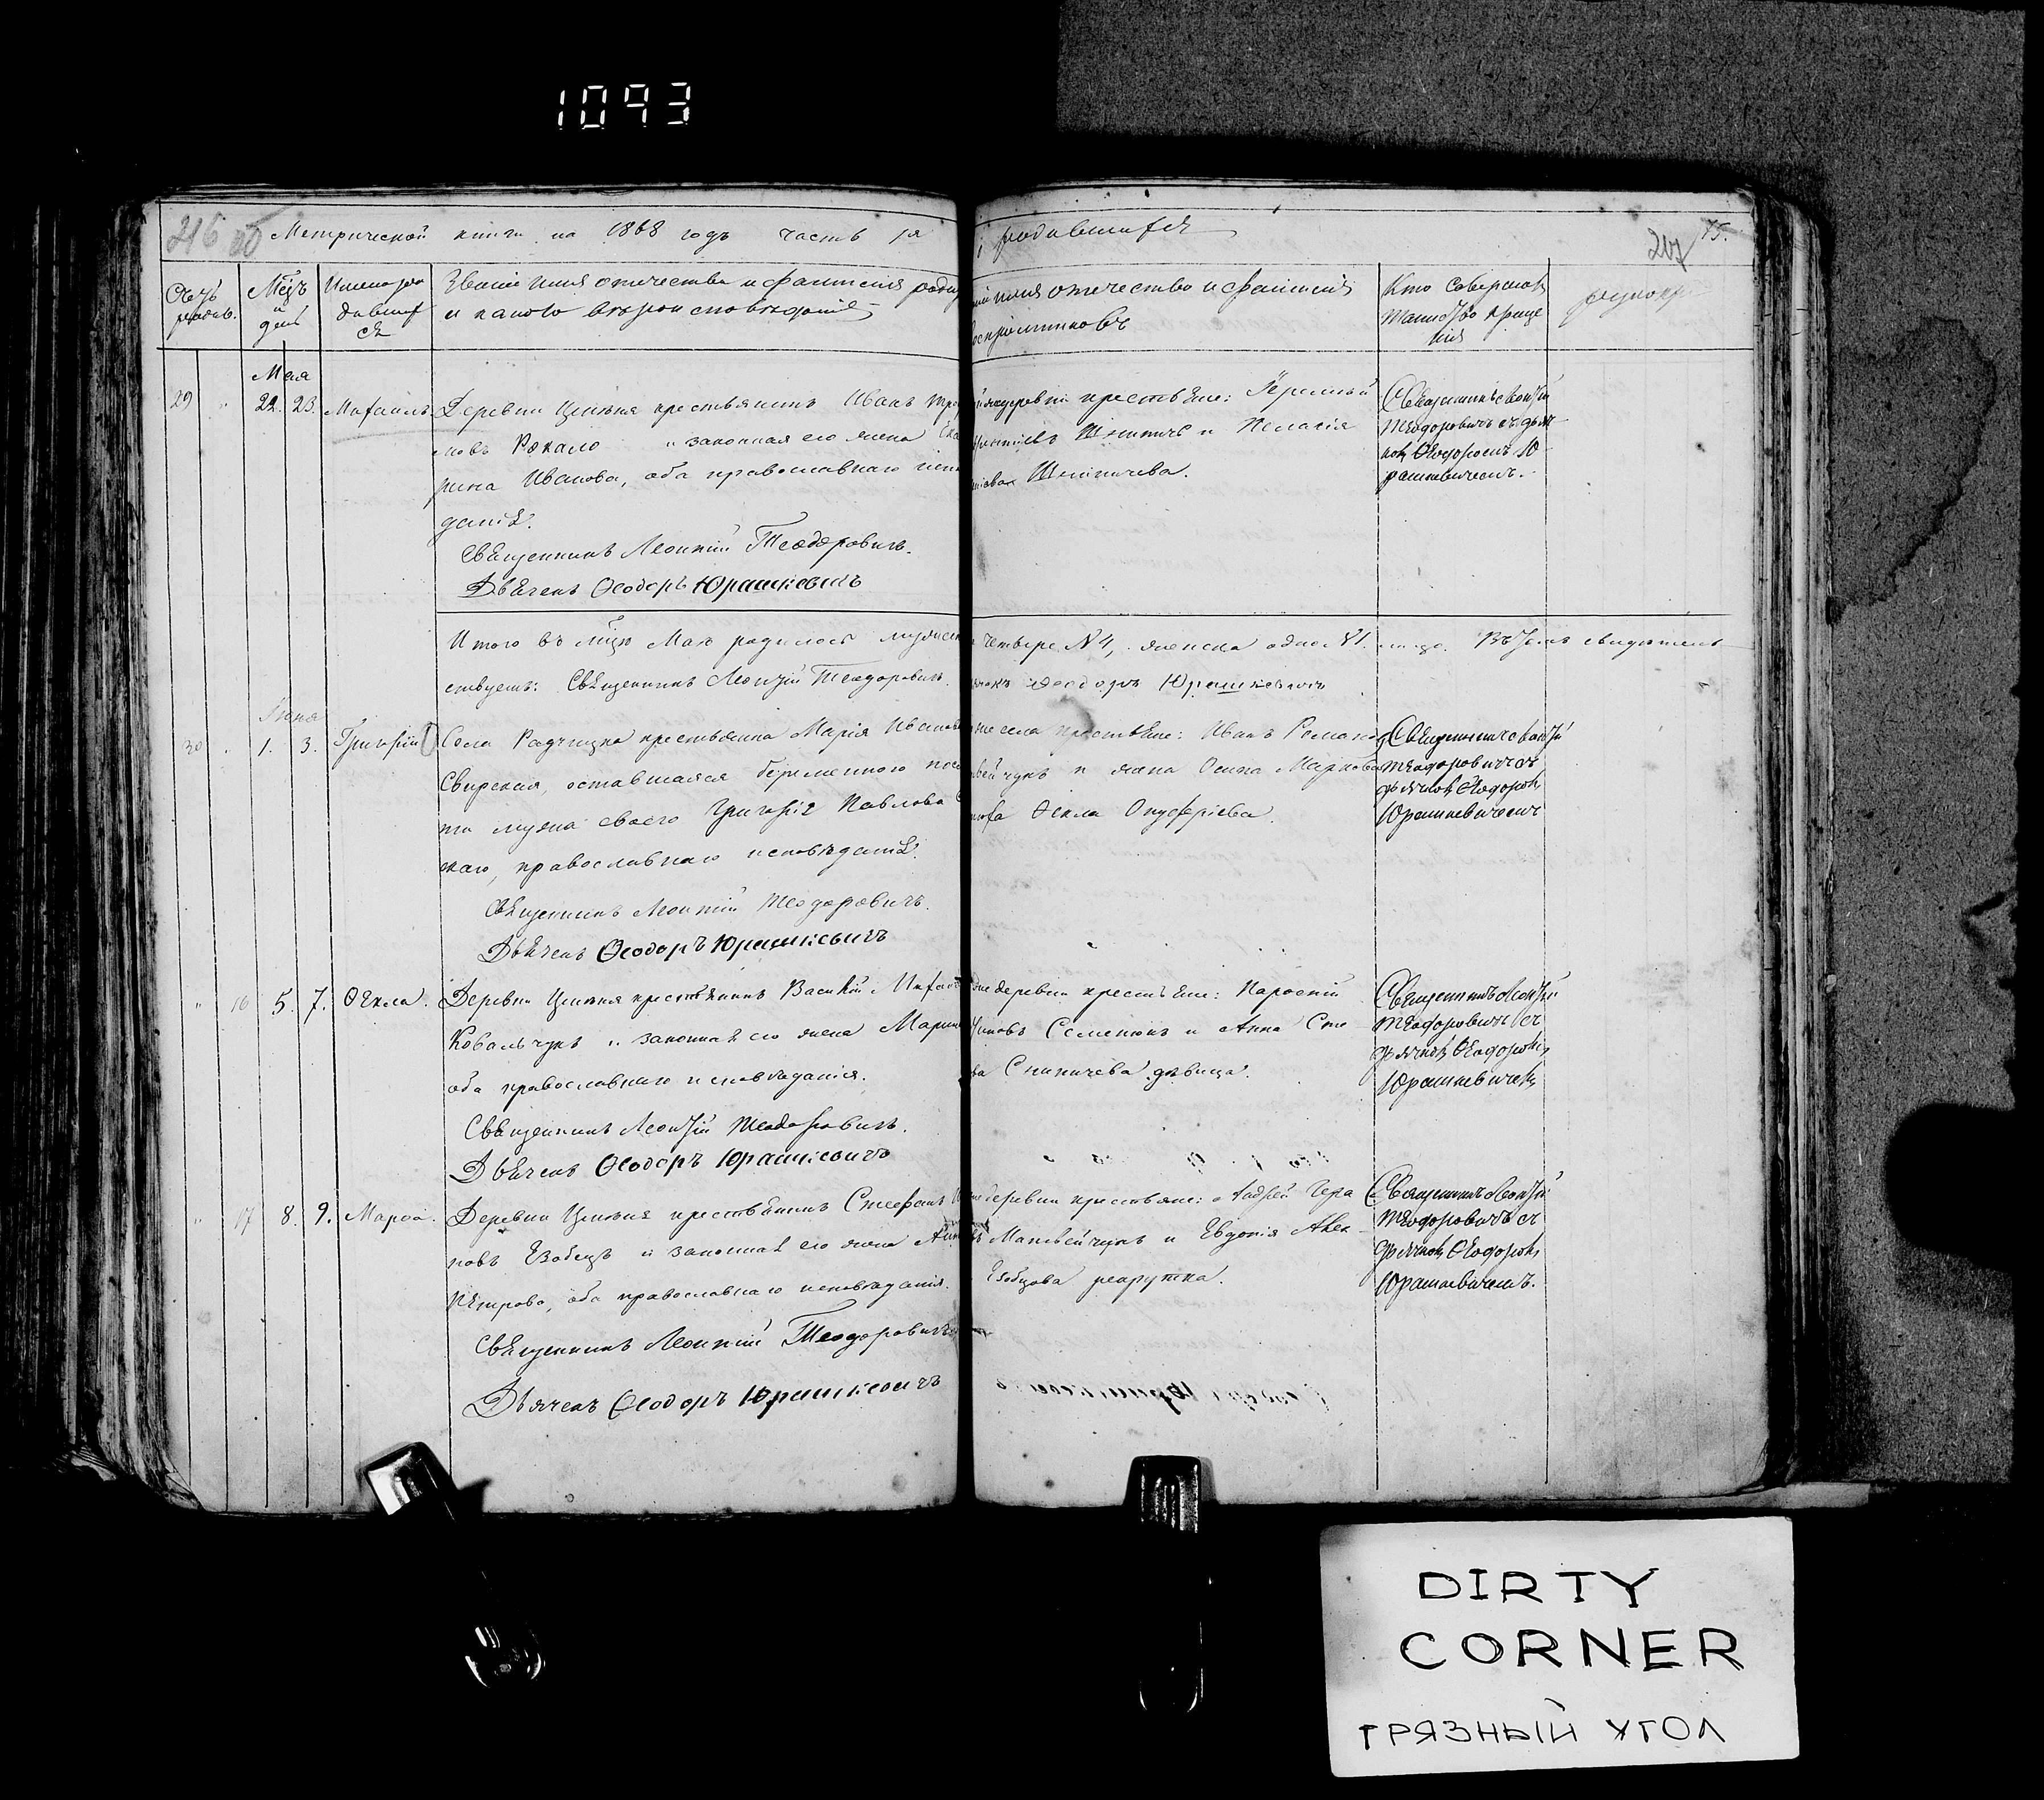 1093
216
Метрической книги на 1868 годъ часть 1я
о родившихся
207
75.
Счетъ родив.
Мѣцъ и день
Имена родившихся
Званіе имя отечество и фамилія роди
и какого вѣроисповѣданія
имя отечество и фамилія
воспріемниковъ
Кто совершалъ
таинство креще
нія
рукопр
Мая
29 22. 23. Михаилъ
Деревни крестьянинъ Иванъ
новъ и законная его жена Ека
рина Иванова, оба православнаго испо
данія.
Священникъ Леонтій Теодоровичъ.
Дьячекъ Ѳеодоръ Юрашкевичъ
деревни крестьяне:
и Пелагія
Священникъ Леонтій
Теодоровичъ съ дьяч
комъ Ѳеодоромъ Ю
рашкевичемъ.
Итого въ мѣцѣ Маѣ родилось мужеск
четверо №4, женска одно №1. Въ томъ свидѣтель
ствуетъ: Священникъ Леонтій Теодоровичъ.
Ѳеодоръ Юрашкевичъ
Іюня
30 1. 3. Григорій
Села Радчицка крестьянка Марія Иванова
Свирская, оставшаяся беременною посл
ти мужа своего Григорія Павлова С
скаго, православнаго исповѣданія.
Священникъ Леонтій Теодоровичъ.
Дьячекъ Ѳеодоръ Юрашкевичъ
села крестьяне: Иванъ Романовъ
и жена Осипа Маркова
Ѳекла Онуфріева.
Священникъ Леонтій
Теодоровичъ съ
дьячкомъ Ѳеодоромъ
Юрашкевичемъ
" 16 5. 7. Ѳекла.
Деревни крестьянинъ Василій Михаи
Ковальчукъ и законная его жена Марія
оба православнаго исповѣданія.
Священникъ Леонтій Теодоровичъ.
Дьячекъ Ѳеодоръ Юрашкевичъ
деревни крестьяне:
Семенюкъ и Анна Сте
ва дѣвица.
Священникъ Леонтій
Теодоровичъ съ
дьячкомъ Ѳеодоромъ
Юрашкевичемъ
" 17 8. 9. Марѳа.
Деревни крестьянинъ Стефанъ
новъ Езобецъ и законная его жена Анна
Петрова, оба православнаго исповѣданія.
Священникъ Леонтій Теодоровичъ
Дьячекъ Ѳеодоръ Юрашкевичъ
деревни крестьяне: Андрей Гера
Матвейчукъ и Евдокія Алек
Езобцова рекрутка.
Священникъ Леонтій
Теодоровичъ съ
дьячкомъ Ѳеодоромъ
Юрашкевичемъ.
DIRTY
CORNER
ГРЯЗНЫЙ УГОЛ